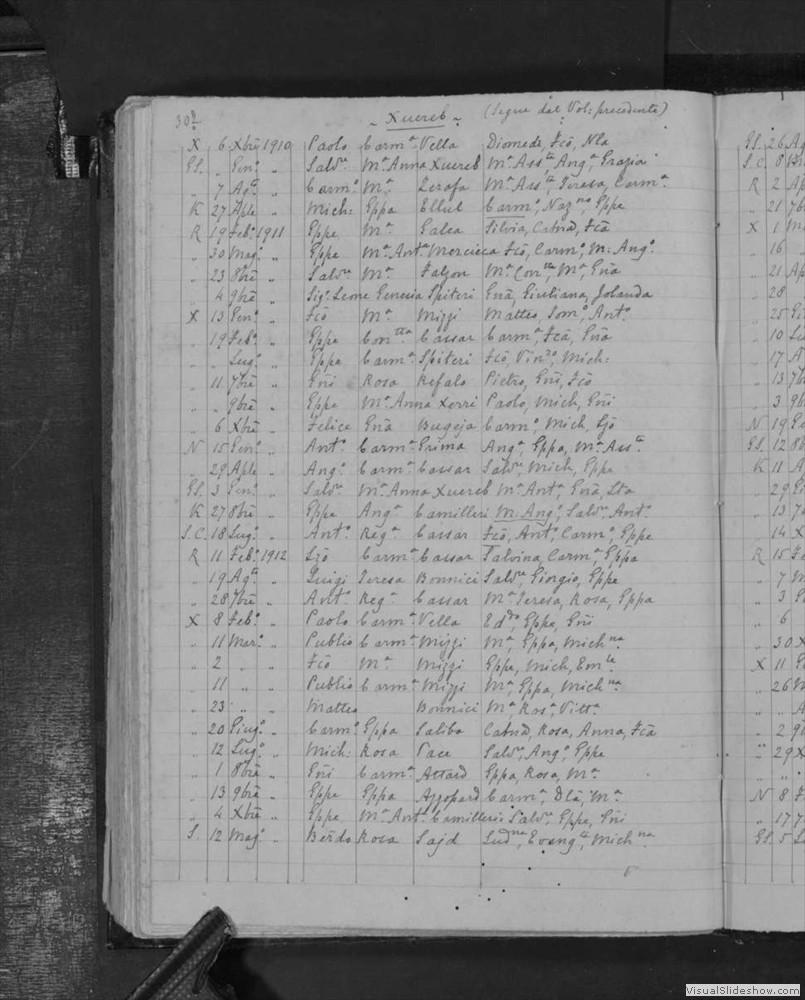 302 - Xuereb - (Segue dal Vol: precedente)
X 6 Xbrē 1910 Paolo Carmª Vella Diomede, Fcō, Nla
GS. " Genº " Salvʳᵉ Mª Anna Xuereb Mª Assᵗᵃ Angª Grazia
" 7 Agᵗᵒ " Carmº Mª Zerafa Mª Assᵗᵃ, Teresa, Carmª
K 27 Aple " Mich: Gppa Ellul Carmº, Nazⁿᵒ, Gppe
R 19 Febº 1911 Gppe Mª Galea Silvia, Catnā, Fcā
" 30 Magº " Gppe Mª Antª Mercieca Fcō, Carmº, M. Angº
" 23 8brē " Salvʳᵉ Mª Falzon Mª Conᵗᵃ, Mª, Gnā
" 4 9brē " Sigʳ Leone Genesia Spiteri Gnā, Giuliana, Jolanda
X 13 Genº " Fcō Mª Mizzi Matteo, Somº, Antº
" 19 Febº " Gppe Conᵗᵗᵃ Cassar Carmª, Fcā, Gnā
" " Lugº " Gppe Carmª Spiteri Fcō, Vinᶻᵒ, Mich:
" 11 7brē " Gñi Rosa Refalo Pietro, Gñi, Fcō
" " 9brē " Gppe Mª Anna Xerri Paolo, Mich, Gñi
" 6 Xbrē " Felice Gnā Bugeja Carmº, Mich, Ljō
N 15 Genº " Antº Carmª Grima Angª, Gppa, Mª Assᵗᵃ
" 29 Aple " Angº Carmª Cassar Salvʳᵉ, Mich, Gppe
GS. 3 Genº " Salvʳᵉ Mª Anna Xuereb Mª Antª, Gnā,
K 27 8brē " Gppe Angª Camilleri M. Angº, Salvʳᵉ Antº
S.C. 18 Lugº " Antº Regª Cassar Fcō, Antº, Carmº, Gppe
R 11 Febº 1912 Ljō Carmª Cassar Salvina, Carmª, Gppa
" 19 Agᵗᵒ " Luigi Teresa Bonnici Salvʳᵉ, Giorgio, Gppe
" 28 7brē " Antº Regª Cassar Mª Teresa, Rosa, Gppa
X 8 Febº " Paolo Carmª Vella Edᵈᵒ, Gppe, Gñi
" 11 Marº " Publio Carmª Mizzi Mª, Gppa, Michⁿᵃ
" 2 " " Fcō Mª Mizzi Gppe, Mich, Emˡᵉ
" 11 " " Publio Carmª Mizzi Mª, Gppa, Michⁿᵃ
" 23 " " Matteo Bonnici Mª, Rosª, Vittª
" 20 Giugº " Carmº Gppa Saliba Catnā, Rosa, Anna, Fcā
" 12 Lugº " Mich: Rosa Pace Salvʳᵉ, Angº, Gppe
" 1 8brē " Gñi Carmª Attard Gppa, Rosa, Mª
" 13 9brē " Gppe Gppa Azzopard Carmª, Dlā, Mª
" 4 Xbrē " Gppe Mª Antª Camilleri Salvʳᵉ, Gppe, Gñi
S. 12 Magº " Beñdo Rosa Sajd Ludⁿᵃ, Evangᵗᵃ, Michⁿᵃ
GS. 26
S.C. 8
R 2
" 21
X 1
" 16
" 21
" 28
" 25
" 10
" 17
" 13
" 3
N 19
GS. 12
K 11
" 29
" 13
" 14
R 15
" 7
" 3
" 6
" 30
X 11
" 26
" "
" 2
" 29
" "
N 8
" 17
GS. 5
VisualSlideshow.com